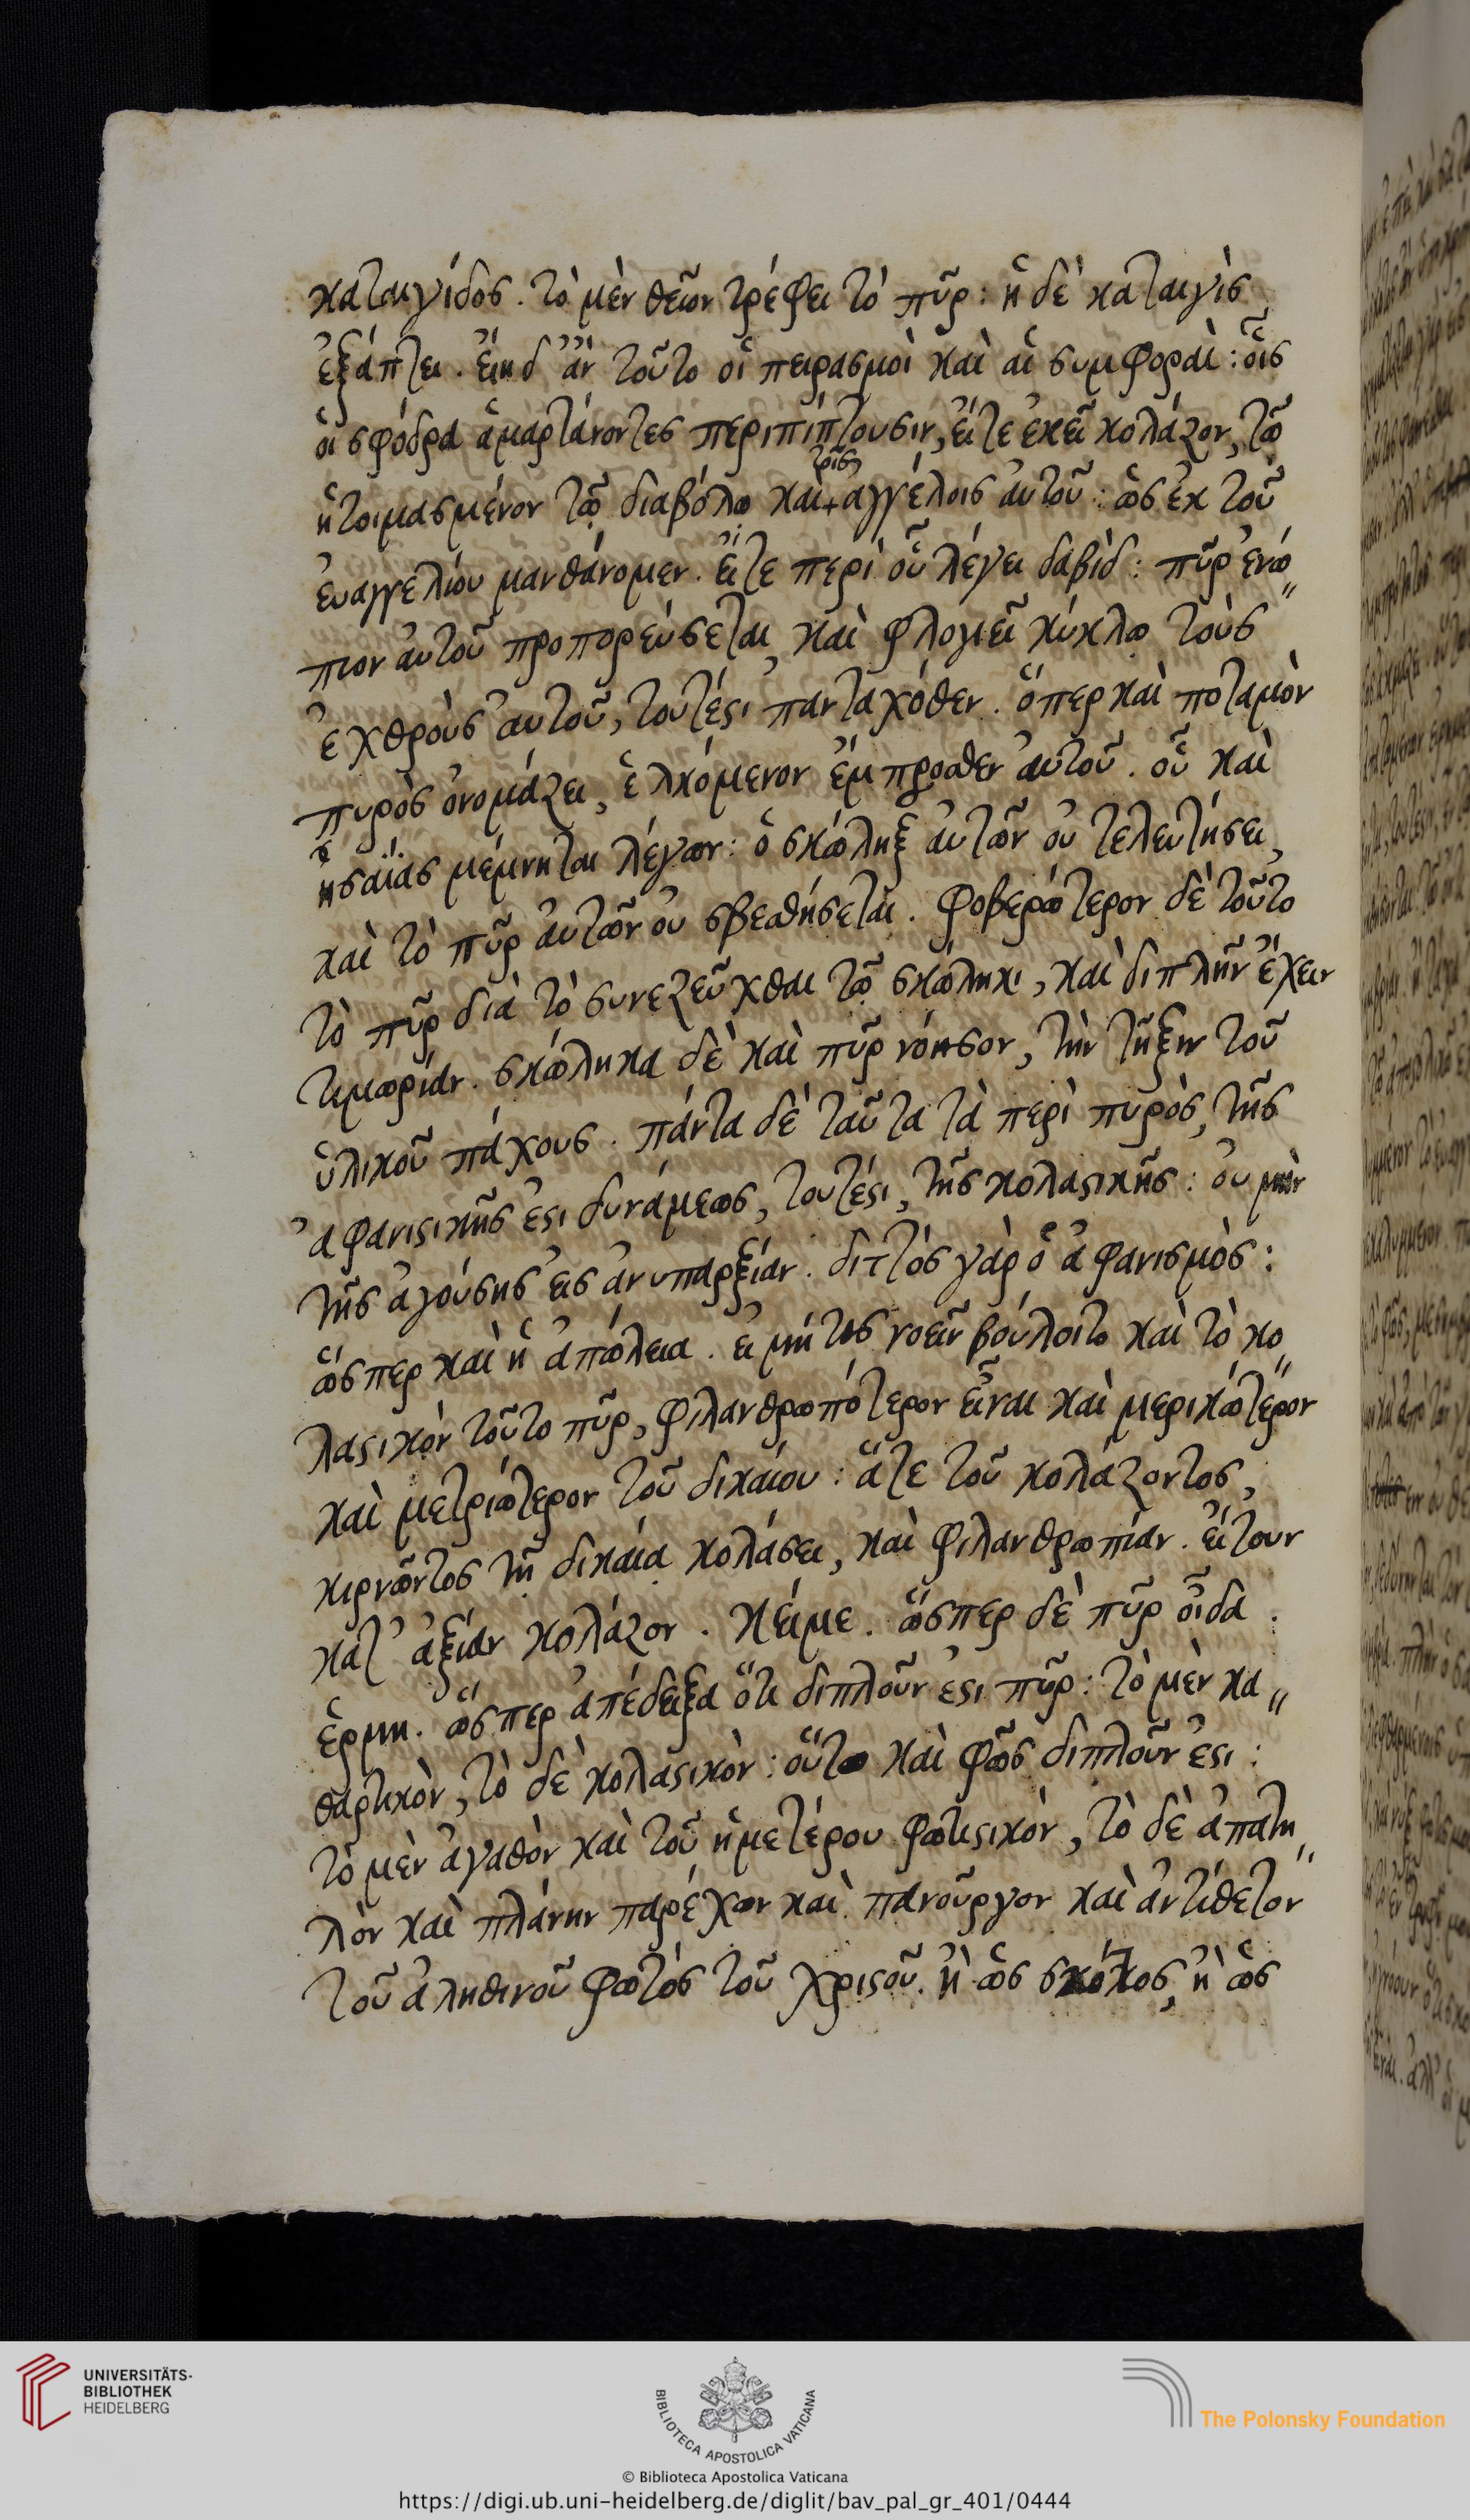 καταιγίδος. τὸ μὲν θεῖον τρέφει τὸ πῦρ: ἡ δὲ καταιγὶς
ἐξάπτει. εἴη δ' ἂν τοῦτο οἱ πειρασμοὶ καὶ αἱ συμφοραὶ: οἷς
οἱ σφόδρα ἁμαρτάνοντες περιπίπτουσιν, εἴτε ἐκεῖ κολάζον, τῶ
ἡτοιμασμένον τῷ διαβόλῳ καὶ + τοῖς ἀγγέλοις αὐτοῦ: ὡς ἐκ τοῦ
εὐαγγελίου μανθάνομεν. εἴτε περὶ οὗ λέγει δαβὶδ: πῦρ ἐνώ
πιον αὐτοῦ προπορεύσεται, καὶ φλογιεῖ κύκλῳ τοὺς
ἐχθροὺς αὐτοῦ, τουτέστι πανταχόθεν. ὅπερ καὶ ποταμὸν
πυρὸς ὀνομάζει, ἑλκόμενον ἔμπροσθεν αὐτοῦ. οὗ καὶ
ἡσαΐας μέμνηται λέγων: ὁ σκώληξ αὐτῶν οὐ τελευτήσει,
καὶ τὸ πῦρ αὐτῶν οὐ σβεσθήσεται. φοβερώτερον δὲ τοῦτο
τὸ πῦρ διὰ τὸ συνεζεῦχθαι τῷ σκώληκι, καὶ διπλῆν ἔχειν
τιμωρίαν. σκώληκα δὲ καὶ πῦρ νόησον, τὴν τῆξιν τοῦ
ὑλικοῦ πάχους. πάντα δὲ ταῦτα τὰ περὶ πυρὸς, τῆς
ἀφανιστικῆς ἐστι δυνάμεως, τουτέστι, τῆς κολαστικῆς: οὐ μὴν
τῆς ἀγούσης εἰς ἀνυπαρξίαν. διττὸς γὰρ ὁ ἀφανισμὸς:
ὥσπερ καὶ ἡ ἀπώλεια. εἰ μή τις νοεῖν βούλοιτο καὶ τὸ κο
λαστικὸν τοῦτο πῦρ, φιλανθρωπότερον εἶναι καὶ μερικώτερον
καὶ μετριώτερον τοῦ δικαίου: ἅτε τοῦ κολάζοντος,
κιρνῶντος τῇ δικαίᾳ κολάσει, καὶ φιλανθρωπίαν. εἴτουν
κατ' ἀξίαν κολάζον. κείμε. ὥσπερ δὲ πῦρ οἶδα.
ἑρμη. ὥσπερ ἀπέδειξα ὅτι διπλοῦν ἐστι πῦρ: τὸ μὲν κα
θαρτικὸν, τὸ δὲ κολαστικὸν: οὕτω καὶ φῶς διπλοῦν ἐστι:
τὸ μὲν ἀγαθὸν καὶ τοῦ ἡμετέρου φωτιστικόν, τὸ δὲ ἀπατη
λὸν καὶ πλάνην παρέχον καὶ πανοῦργον καὶ ἀντίθετον
τοῦ ἀληθινοῦ φωτός τοῦ χριστοῦ. ἢ ὡς σκότος, ἢ ὡς
UNIVERSITÄTS-
BIBLIOTHEK
HEIDELBERG
BIBLIOTECA APOSTOLICA VATICANA
The Polonsky Foundation
© Biblioteca Apostolica Vaticana
https://digi.ub.uni-heidelberg.de/diglit/bav_pal_gr_401/0444